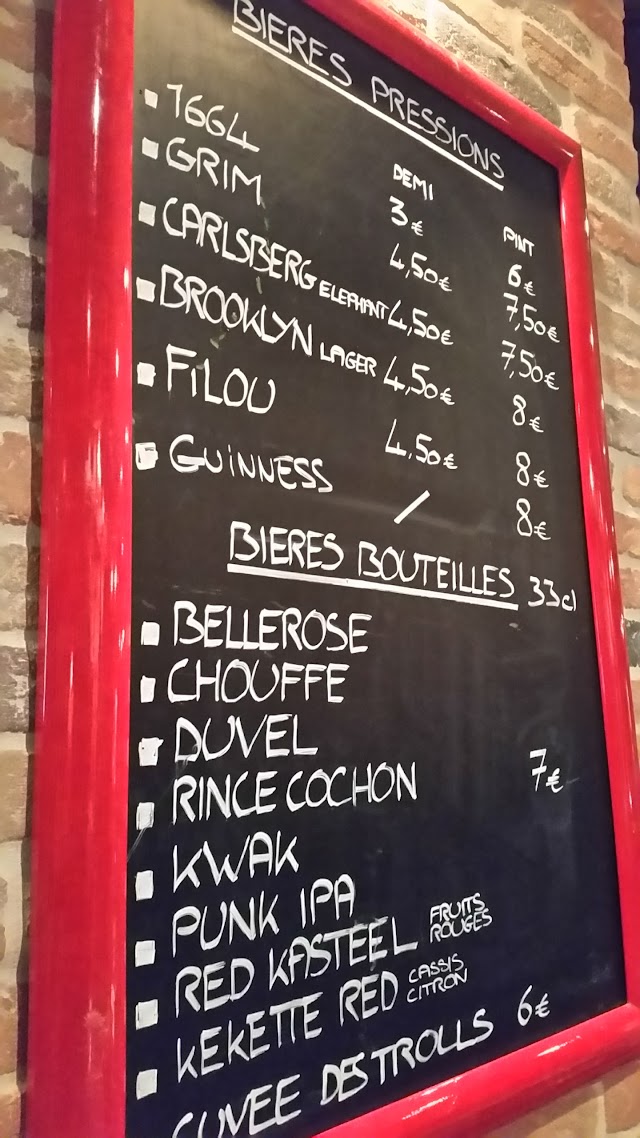 BIERES PRESSIONS
DEMI PINT
1664 3€ 6€
GRIM 4,50€ 7,50€
CARLSBERG ELEPHANT 4,50€ 7,50€
BROOKLYN LAGER 4,50€ 8€
FILOU 4,50€ 8€
GUINNESS / 8€
BIERES BOUTEILLES 33cl
BELLEROSE
CHOUFFE
DUVEL
RINCE COCHON 7€
KWAK
PUNK IPA
RED KASTEEL FRUITS ROUGES
KEKETTE RED CASSIS CITRON
CUVEE DES TROLLS 6€